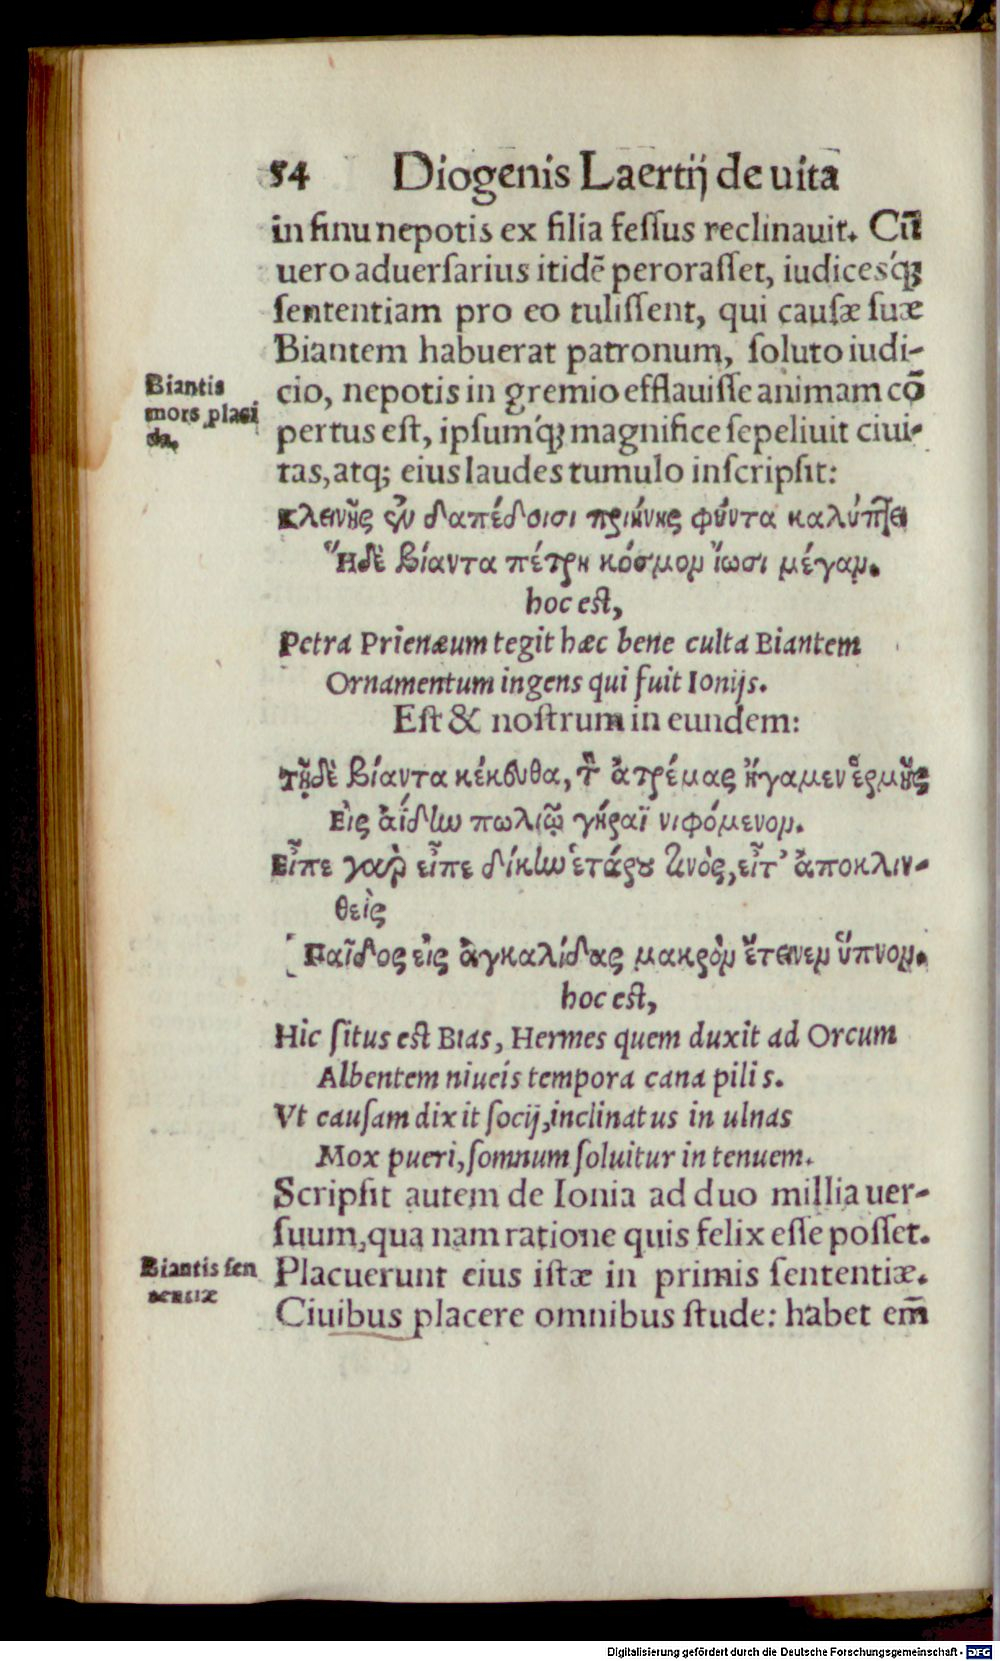 54 Diogenis Laertij de uita
in sinu nepotis ex filia fessus reclinauit. Cū
uero aduersarius itidē perorasset, iudicesq́ꝫ
sententiam pro eo tulissent, qui causæ suæ
Biantem habuerat patronum, soluto iudi-
Biantis
mors placi
da.
cio, nepotis in gremio efflauisse animam cō
pertus est, ipsumq́ꝫ magnifice sepeliuit ciui-
tas, atq; eius laudes tumulo inscripsit:
Κλεινῆς ἐν δαπέδοισι πριήνης φύντα καλύπτει
Ἥδε βίαντα πέτρη κόσμον ἴωσι μέγαν.
hoc est,
Petra Prienæum tegit hæc bene culta Biantem
Ornamentum ingens qui fuit Ionijs.
Est & nostrum in eundem:
Τῇδὲ βίαντα κέκευθα, τὸν ἀτρέμας ἤγαμεν ἑρμῆς
Εἰς ἀΐδην πολιῷ γήραϊ νιφόμενον.
Εἶπε γὰρ εἶπε δίκην ἑτάρου τινὸς, εἶτ᾽ ἀποκλιν-
θεὶς
Παῖδος εἰς ἀγκαλίδας μακρὸν ἔτεινεν ὕπνον.
hoc est,
Hic situs est Bias, Hermes quem duxit ad Orcum
Albentem niueis tempora cana pilis.
Vt causam dixit socij, inclinatus in ulnas
Mox pueri, somnum soluitur in tenuem.
Scripsit autem de Ionia ad duo millia uer-
suum, qua nam ratione quis felix esse posset.
Biantis sen
tentiæ
Placuerunt eius istæ in primis sententiæ.
Ciuibus placere omnibus stude: habet em̄
Digitalisierung gefördert durch die Deutsche Forschungsgemeinschaft - DFG